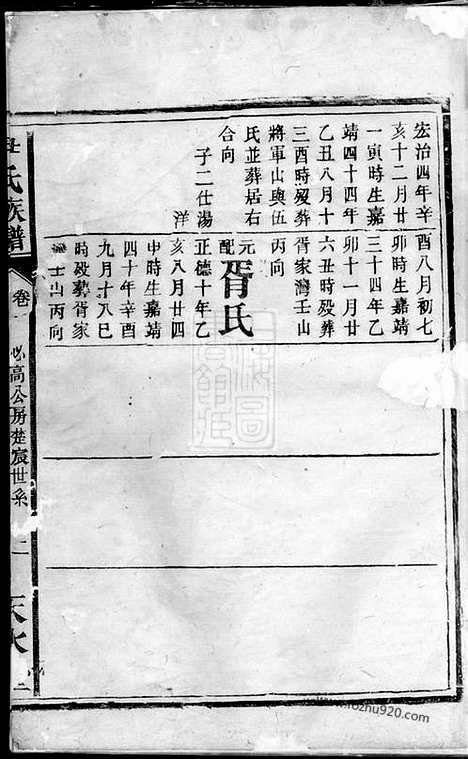 宏治四年辛
亥十二月廿
一寅時生嘉
靖四十四年
乙丑八月十
三酉時殁葬
將軍山與伍
氏並葬居右
合向
子二仕湯
洋
酉八月初七
卯時生嘉靖
三十四年乙
卯十一月廿
六丑時殁葬
胥家灣壬山
丙向
元配胥氏
正德十年乙
亥八月廿四
申時生嘉靖
四十年辛酉
九月十八巳
時殁葬胥家
壬山丙向
氏族譜
卷
必高公房楚宸世系
二
天水
www.fozhu920.com